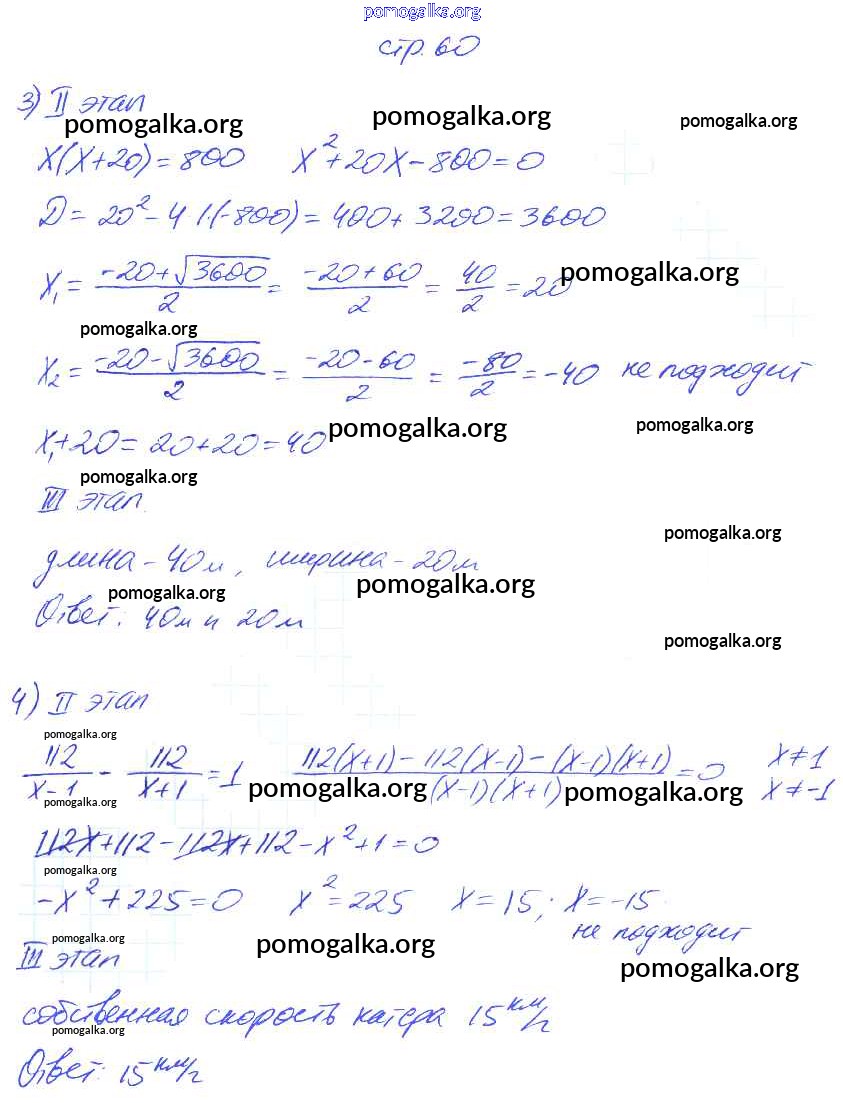 pomogalka.org
стр. 60
3) II этап
pomogalka.org pomogalka.org pomogalka.org
x(x+20)=800 x²+20x-800=0
D=20²-4·1·(-800)=400+3200=3600
x₁ = (-20+√3600)/2 = (-20+60)/2 = 40/2 = 20 pomogalka.org
pomogalka.org
x₂ = (-20-√3600)/2 = (-20-60)/2 = -80/2 = -40 не подходит
x₁+20=20+20=40 pomogalka.org pomogalka.org
pomogalka.org
III этап.
pomogalka.org
длина-40м, ширина-20м
pomogalka.org pomogalka.org
Ответ: 40м и 20м
pomogalka.org
4) II этап
pomogalka.org
112/(x-1) - 112/(x+1) = 1 (112(x+1)-112(x-1)-(x-1)(x+1))/((x-1)(x+1)) = 0 x≠1 x≠-1
pomogalka.org pomogalka.org pomogalka.org
112x+112-112x+112-x²+1=0
pomogalka.org
-x²+225=0 x²=225 x=15; x=-15
не подходит
pomogalka.org pomogalka.org
III этап
pomogalka.org
собственная скорость катера 15 км/ч
pomogalka.org
Ответ: 15 км/ч